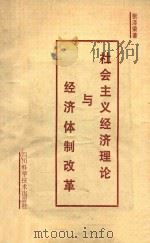 张泽荣著
社会主义经济理论
与
经济体制改革
四川科学技术出版社